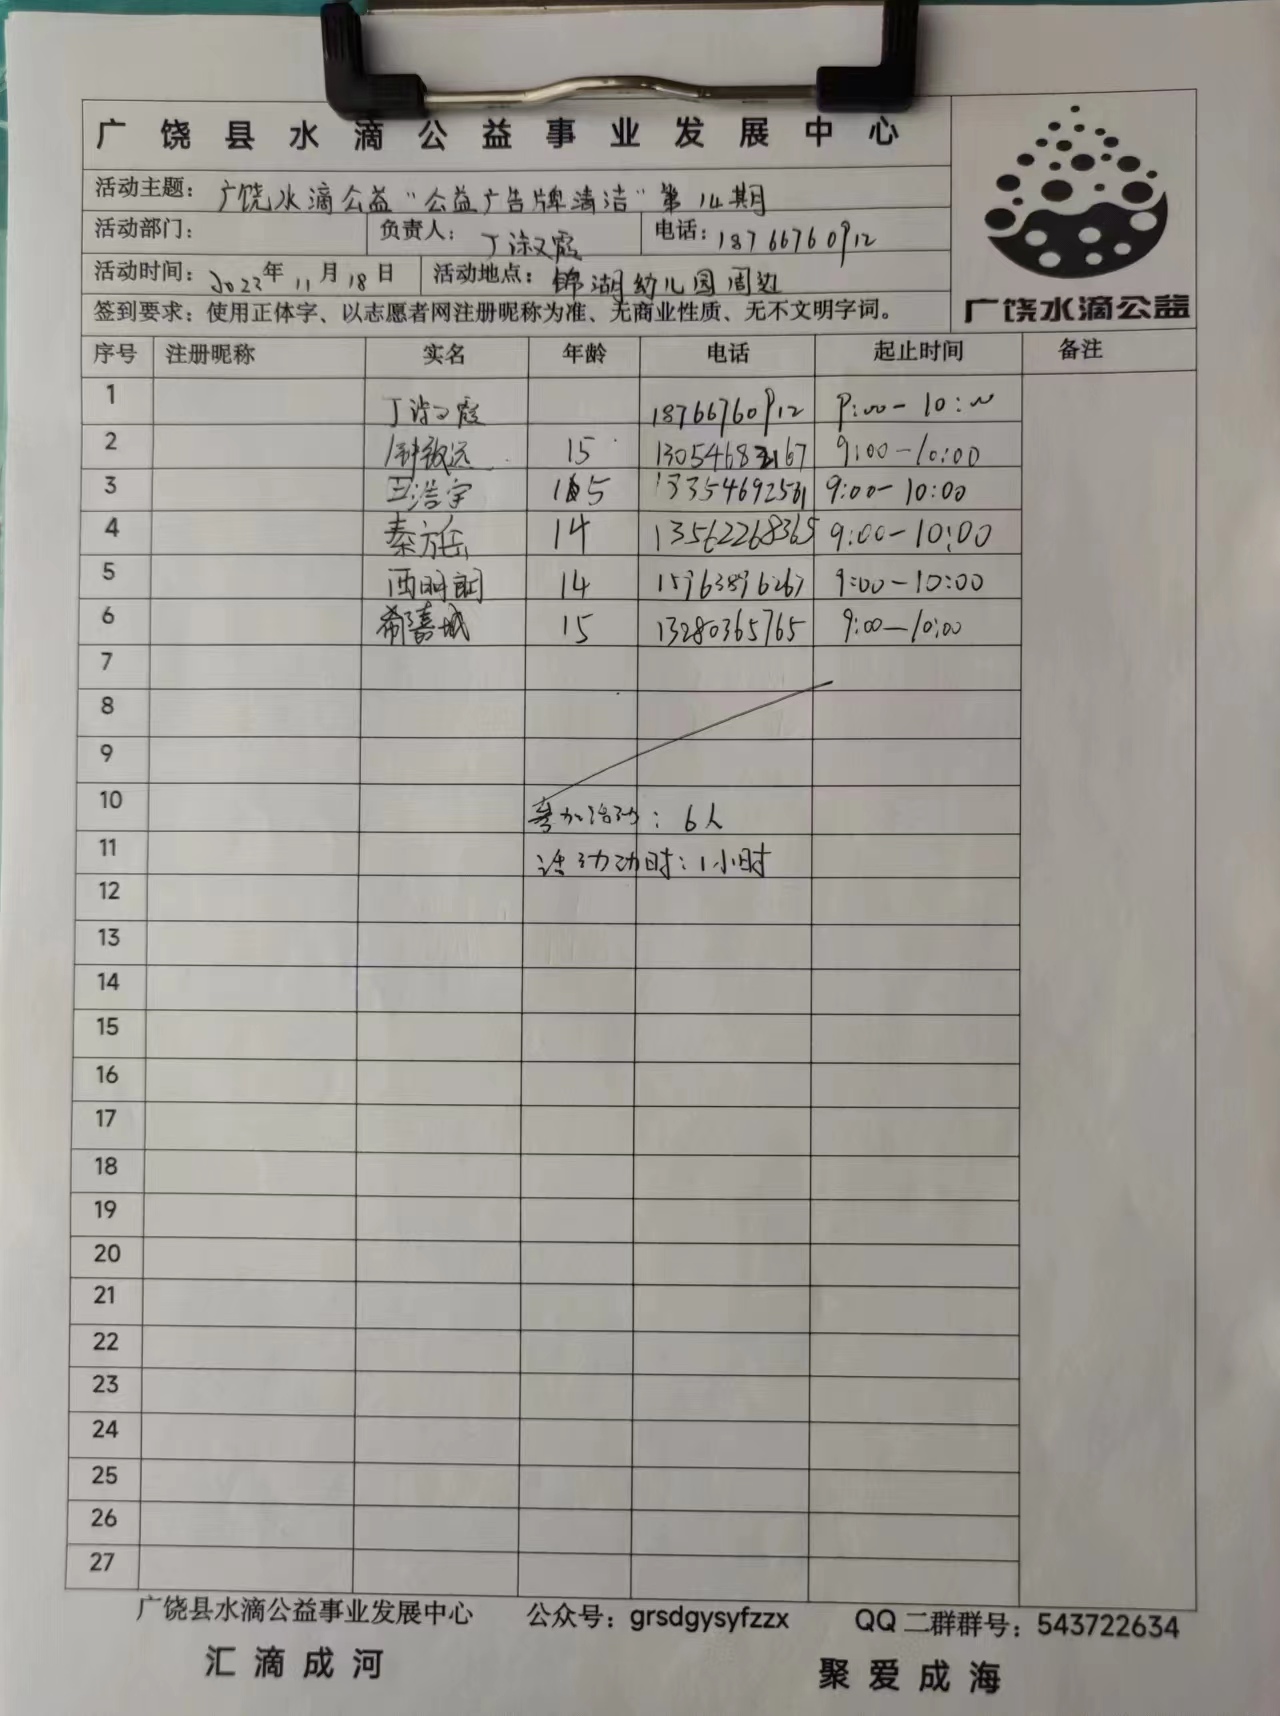 广饶县水滴公益事业发展中心
活动主题：广饶水滴公益“公益广告牌清洁”第14期
活动部门： 负责人：丁淑霞 电话：18766760912
活动时间：2023年11月18日 活动地点：锦湖幼儿园周边
签到要求：使用正体字、以志愿者网注册昵称为准、无商业性质、无不文明字词。
广饶水滴公益
序号 注册昵称 实名 年龄 电话 起止时间 备注
1 丁淑霞 18766760912 9:00-10:00
2 钟致远 15 9:00-10:00
3 王浩宇 15 9:00-10:00
4 秦方岳 14 13562268365 9:00-10:00
5 14 15963896267 9:00-10:00
6 15 13280365765 9:00-10:00
7
8
9
10 参加活动：6人
11 活动动时：1小时
12
13
14
15
16
17
18
19
20
21
22
23
24
25
26
27
广饶县水滴公益事业发展中心 公众号：grsdgysyfzzx QQ 二群群号：543722634
汇滴成河 聚爱成海